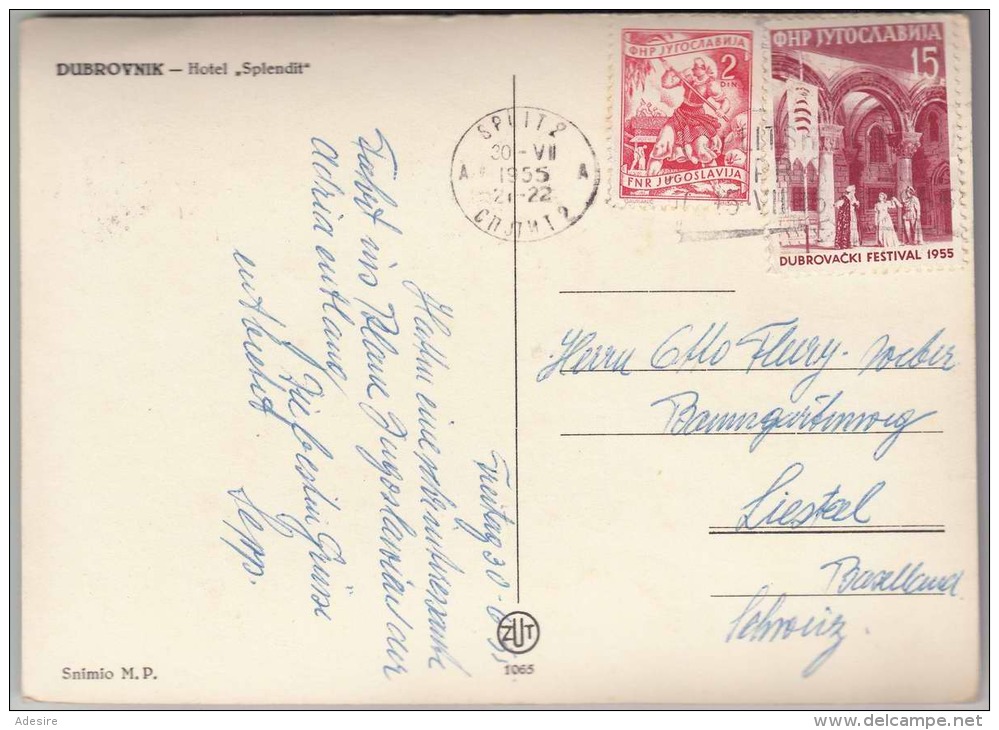 DUBROVNIK — Hotel „Splendit"
ФНР ЈУГОСЛАВИЈА
2
DIN
FNR JUGOSLAVIJA
ФНР ЈУГОСЛАВИЈА
15
DUBROVAČKI FESTIVAL 1955
SPLIT 2
30-VII
1955
21-22
A A
СПЛИТ 2
Freitag 30-
Hatten eine sehr interessante
Fahrt ins Blaue Jugoslawien der
Adria entlang
Die besten Grüsse
entbietet
Sepp.
Herrn Otto Fleury-Weber
Baumgartenweg
Liestal
Baselland
Schweiz
ZUT
1065
Snimio M. P.
Adesire
www.delcampe.net